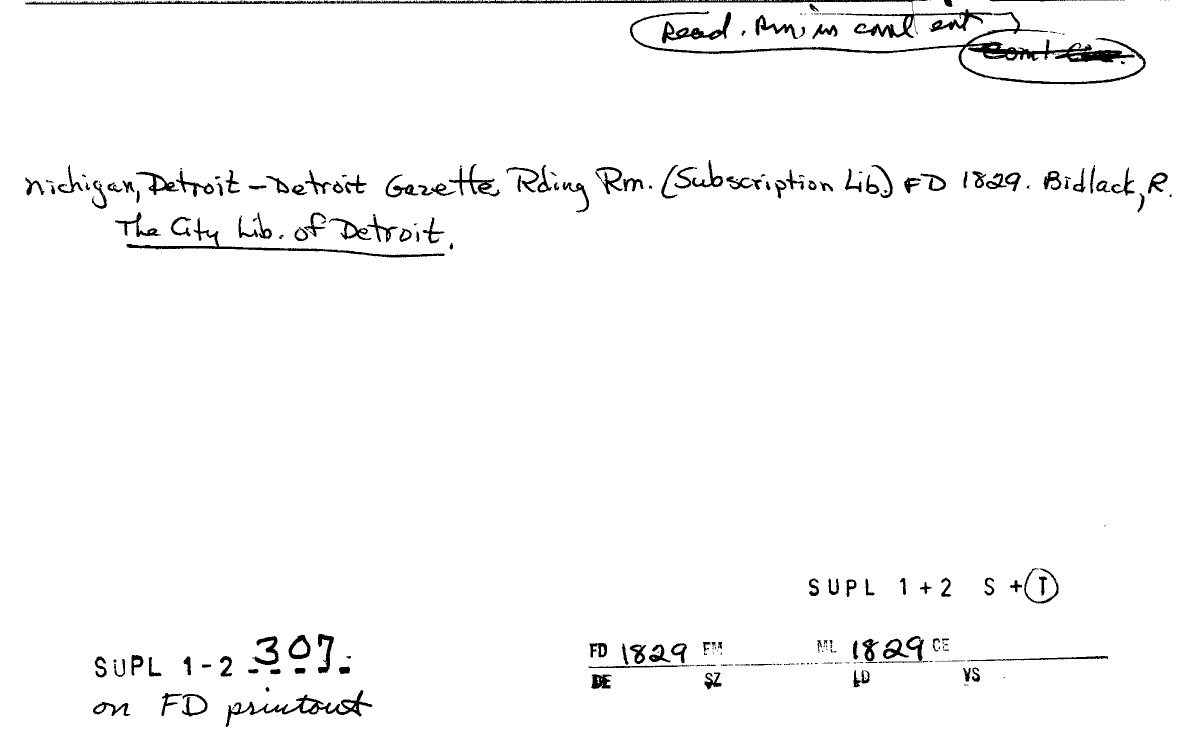 Read. Rm. in coml ent
Michigan, Detroit - Detroit Gazette Rding Rm. (Subscription Lib.) FD 1829. Bidlack, R.
The City Lib. of Detroit.
SUPL 1+2 S + T
SUPL 1-2 307.
on FD printout
FD 1829 FM ML 1829 CE
DE SZ LD VS